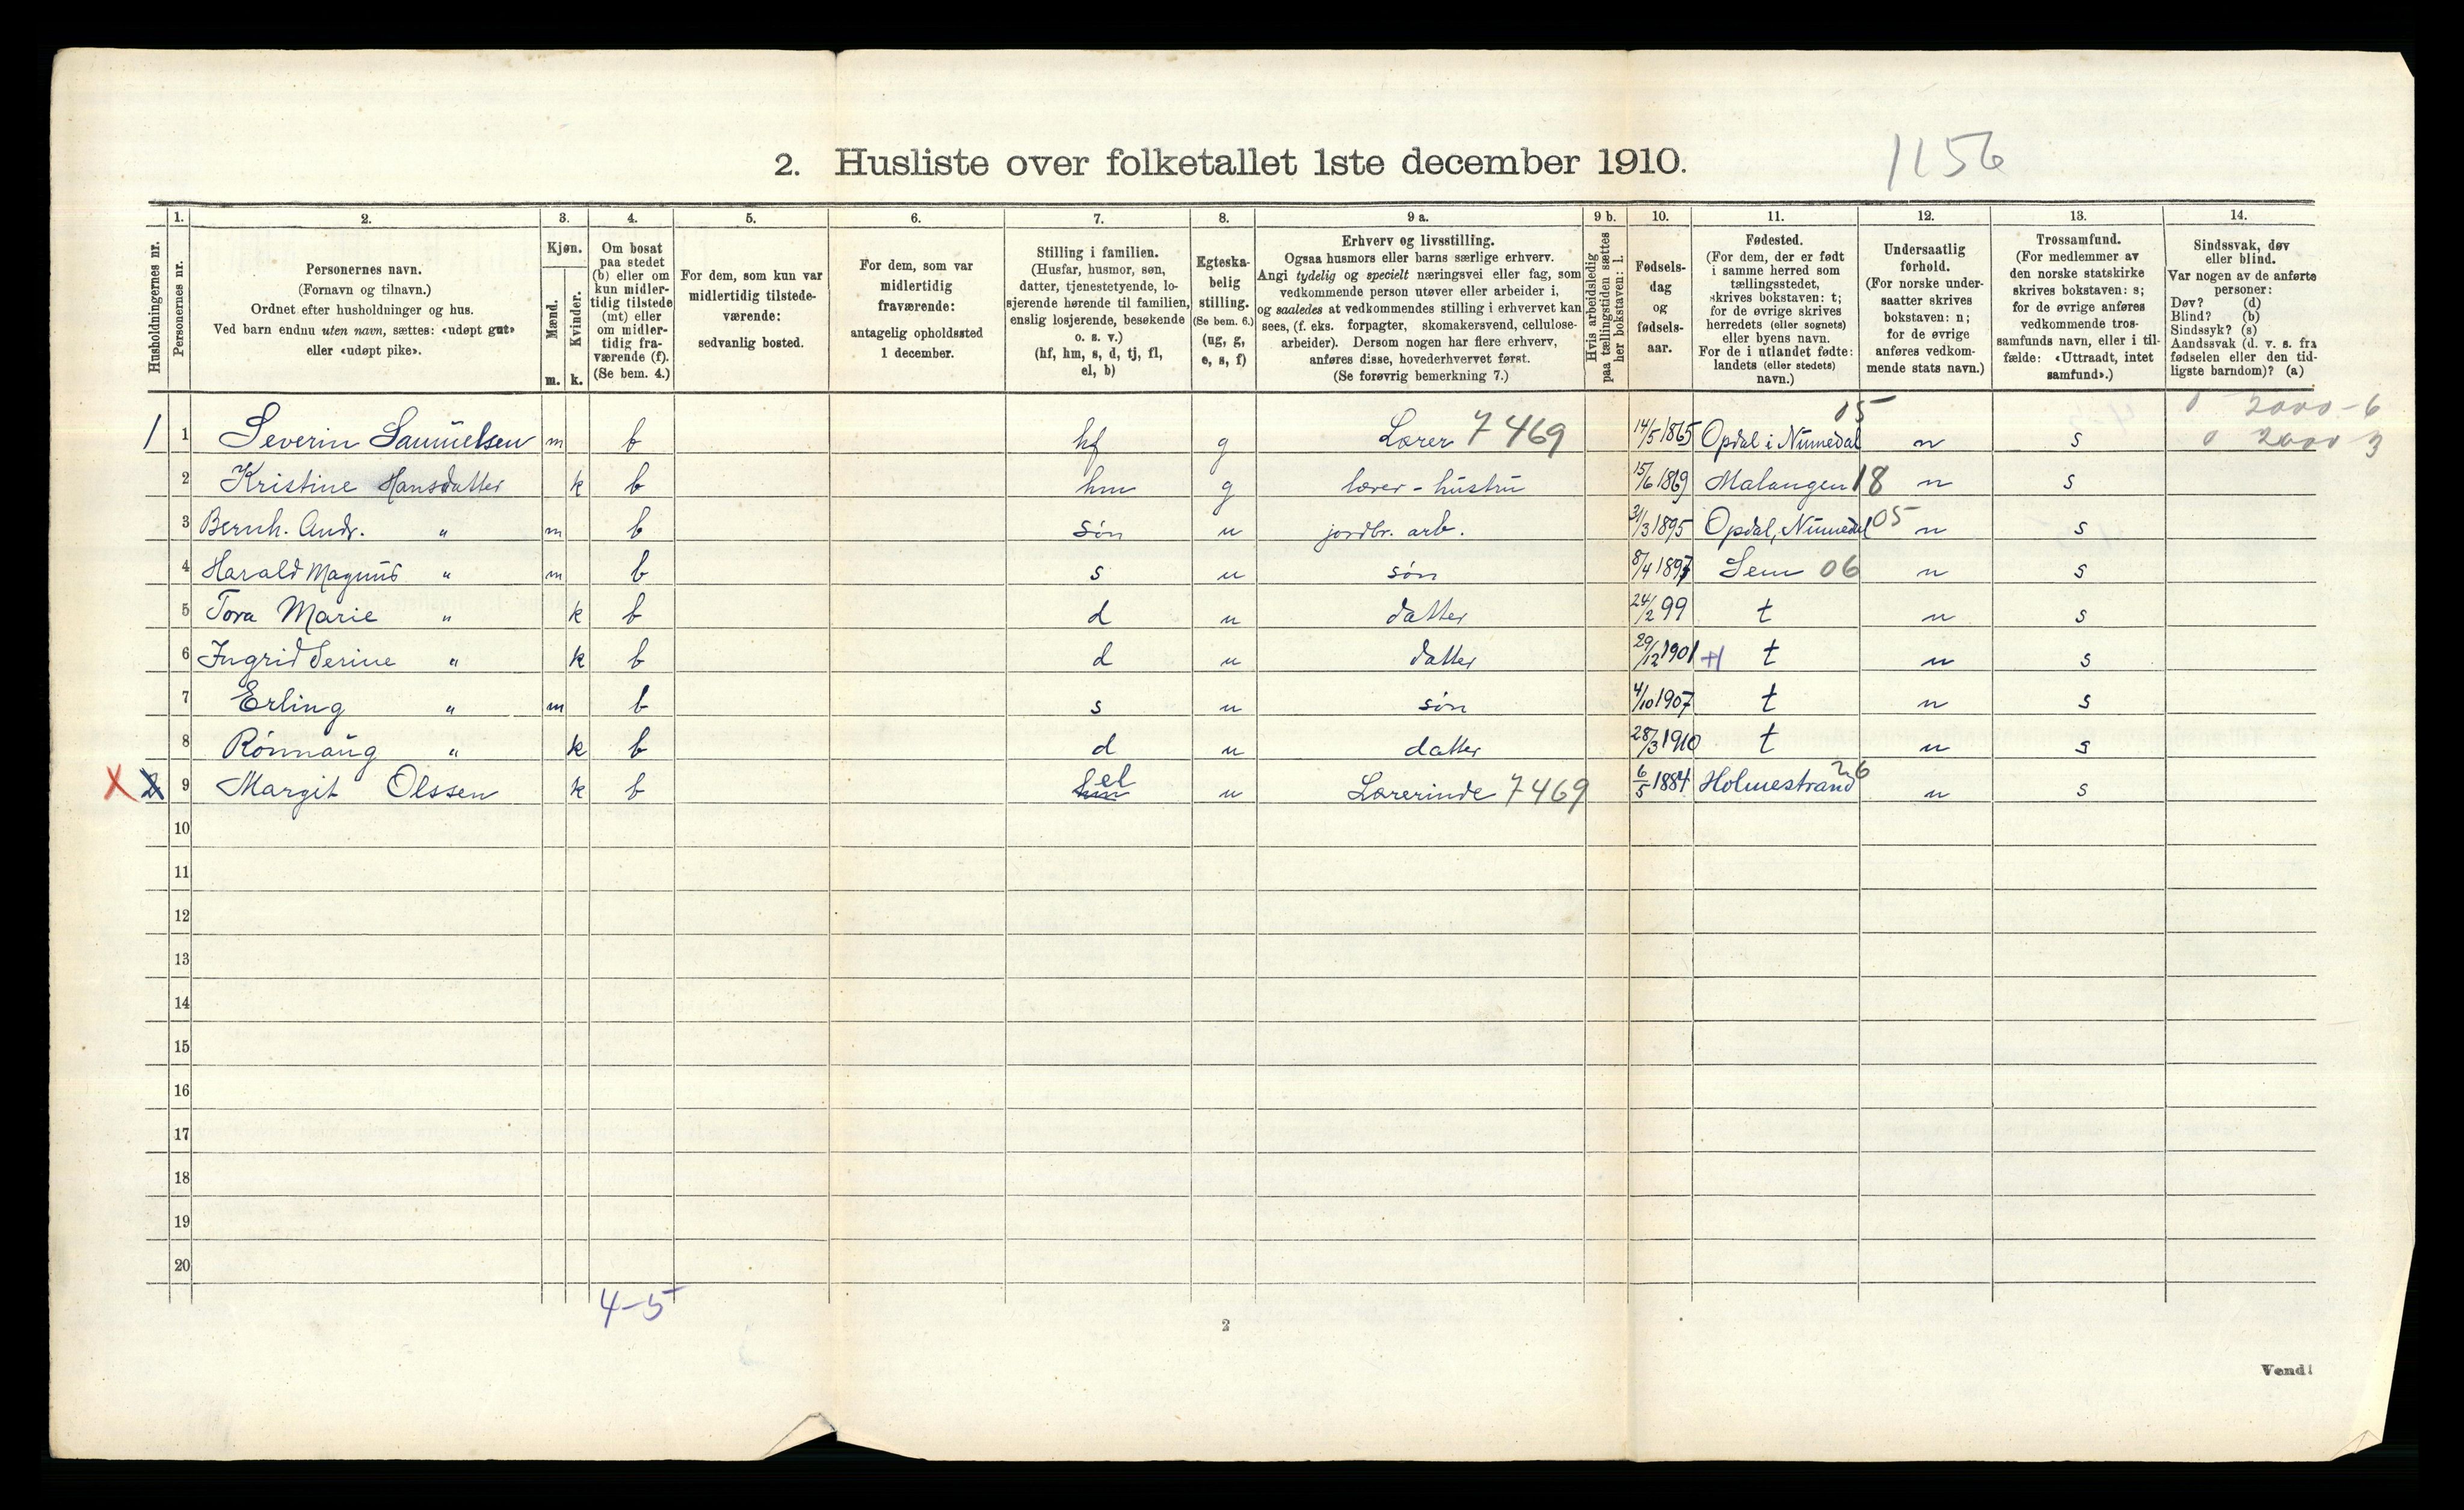 2. Husliste over folketallet 1ste december 1910. 1156
Husholdningernes nr.
1. Personernes nr.
2. Personernes navn. (Fornavn og tilnavn.) Ordnet efter husholdninger og hus. Ved barn endnu uten navn, sættes: «udøpt gut» eller «udøpt pike».
3. Kjøn. Mænd. m. Kvinder. k.
4. Om bosat paa stedet (b) eller om kun midlertidig tilstede (mt) eller om midlertidig fraværende (f). (Se bem. 4.)
5. For dem, som kun var midlertidig tilstedeværende: sedvanlig bosted.
6. For dem, som var midlertidig fraværende: antagelig opholdssted 1 december.
7. Stilling i familien. (Husfar, husmor, søn, datter, tjenestetyende, losjerende hørende til familien, enslig losjerende, besøkende o. s. v.) (hf, hm, s, d, tj, fl, el, b)
8. Egteskabelig stilling. (Se bem. 6.) (ug, g, e, s, f)
9 a. Erhverv og livsstilling. Ogsaa husmors eller barns særlige erhverv. Angi tydelig og specielt næringsvei eller fag, som vedkommende person utøver eller arbeider i, og saaledes at vedkommendes stilling i erhvervet kan sees, (f. eks. forpagter, skomakersvend, cellulosearbeider). Dersom nogen har flere erhverv, anføres disse, hovederhvervet først. (Se forøvrig bemerkning 7.)
9 b. Hvis arbeidsledig paa tællingstiden sættes her bokstaven: l.
10. Fødselsdag og fødselsaar.
11. Fødested. (For dem, der er født i samme herred som tællingsstedet, skrives bokstaven: t; for de øvrige skrives herredets (eller sognets) eller byens navn. For de i utlandet fødte: landets (eller stedets) navn.)
12. Undersaatlig forhold. (For norske undersaatter skrives bokstaven: n; for de øvrige anføres vedkommende stats navn.)
13. Trossamfund. (For medlemmer av den norske statskirke skrives bokstaven: s; for de øvrige anføres vedkommende trossamfunds navn, eller i tilfælde: «Uttraadt, intet samfund».)
14. Sindssvak, døv eller blind. Var nogen av de anførte personer: Døv? (d) Blind? (b) Sindssyk? (s) Aandssvak (d. v. s. fra fødselen eller den tidligste barndom)? (a)
05 0 2000-6
1 1 Severin Samuelsen m b hf g Lærer 7469 14/5 1865 Opdal i Numedal n s 0 2000 3
2 Kristine Hansdatter k b hm g lærer-hustru 15/6 1869 Malangen 18 n s
3 Bernh. Andr. " m b søn u jordbr. arb. 31/3 1895 Opdal, Numedal 05 n s
4 Harald Magnus " m b s u søn 8/4 1897 Sem 06 n s
5 Tora Marie " k b d u datter 24/2 99 t n s
6 Ingrid Serine " k b d u datter 29/12 1901 t n s
7 Erling " m b s u søn 4/10 1907 t n s
8 Rønnaug " k b d u datter 28/3 1910 t n s
X 2 9 Margit Olssen k b hm el u Lærerinde 7469 6/5 1884 Holmestrand 26 n s
10
11
12
13
14
15
16
17
18
19
20
4-5
2
Vend!